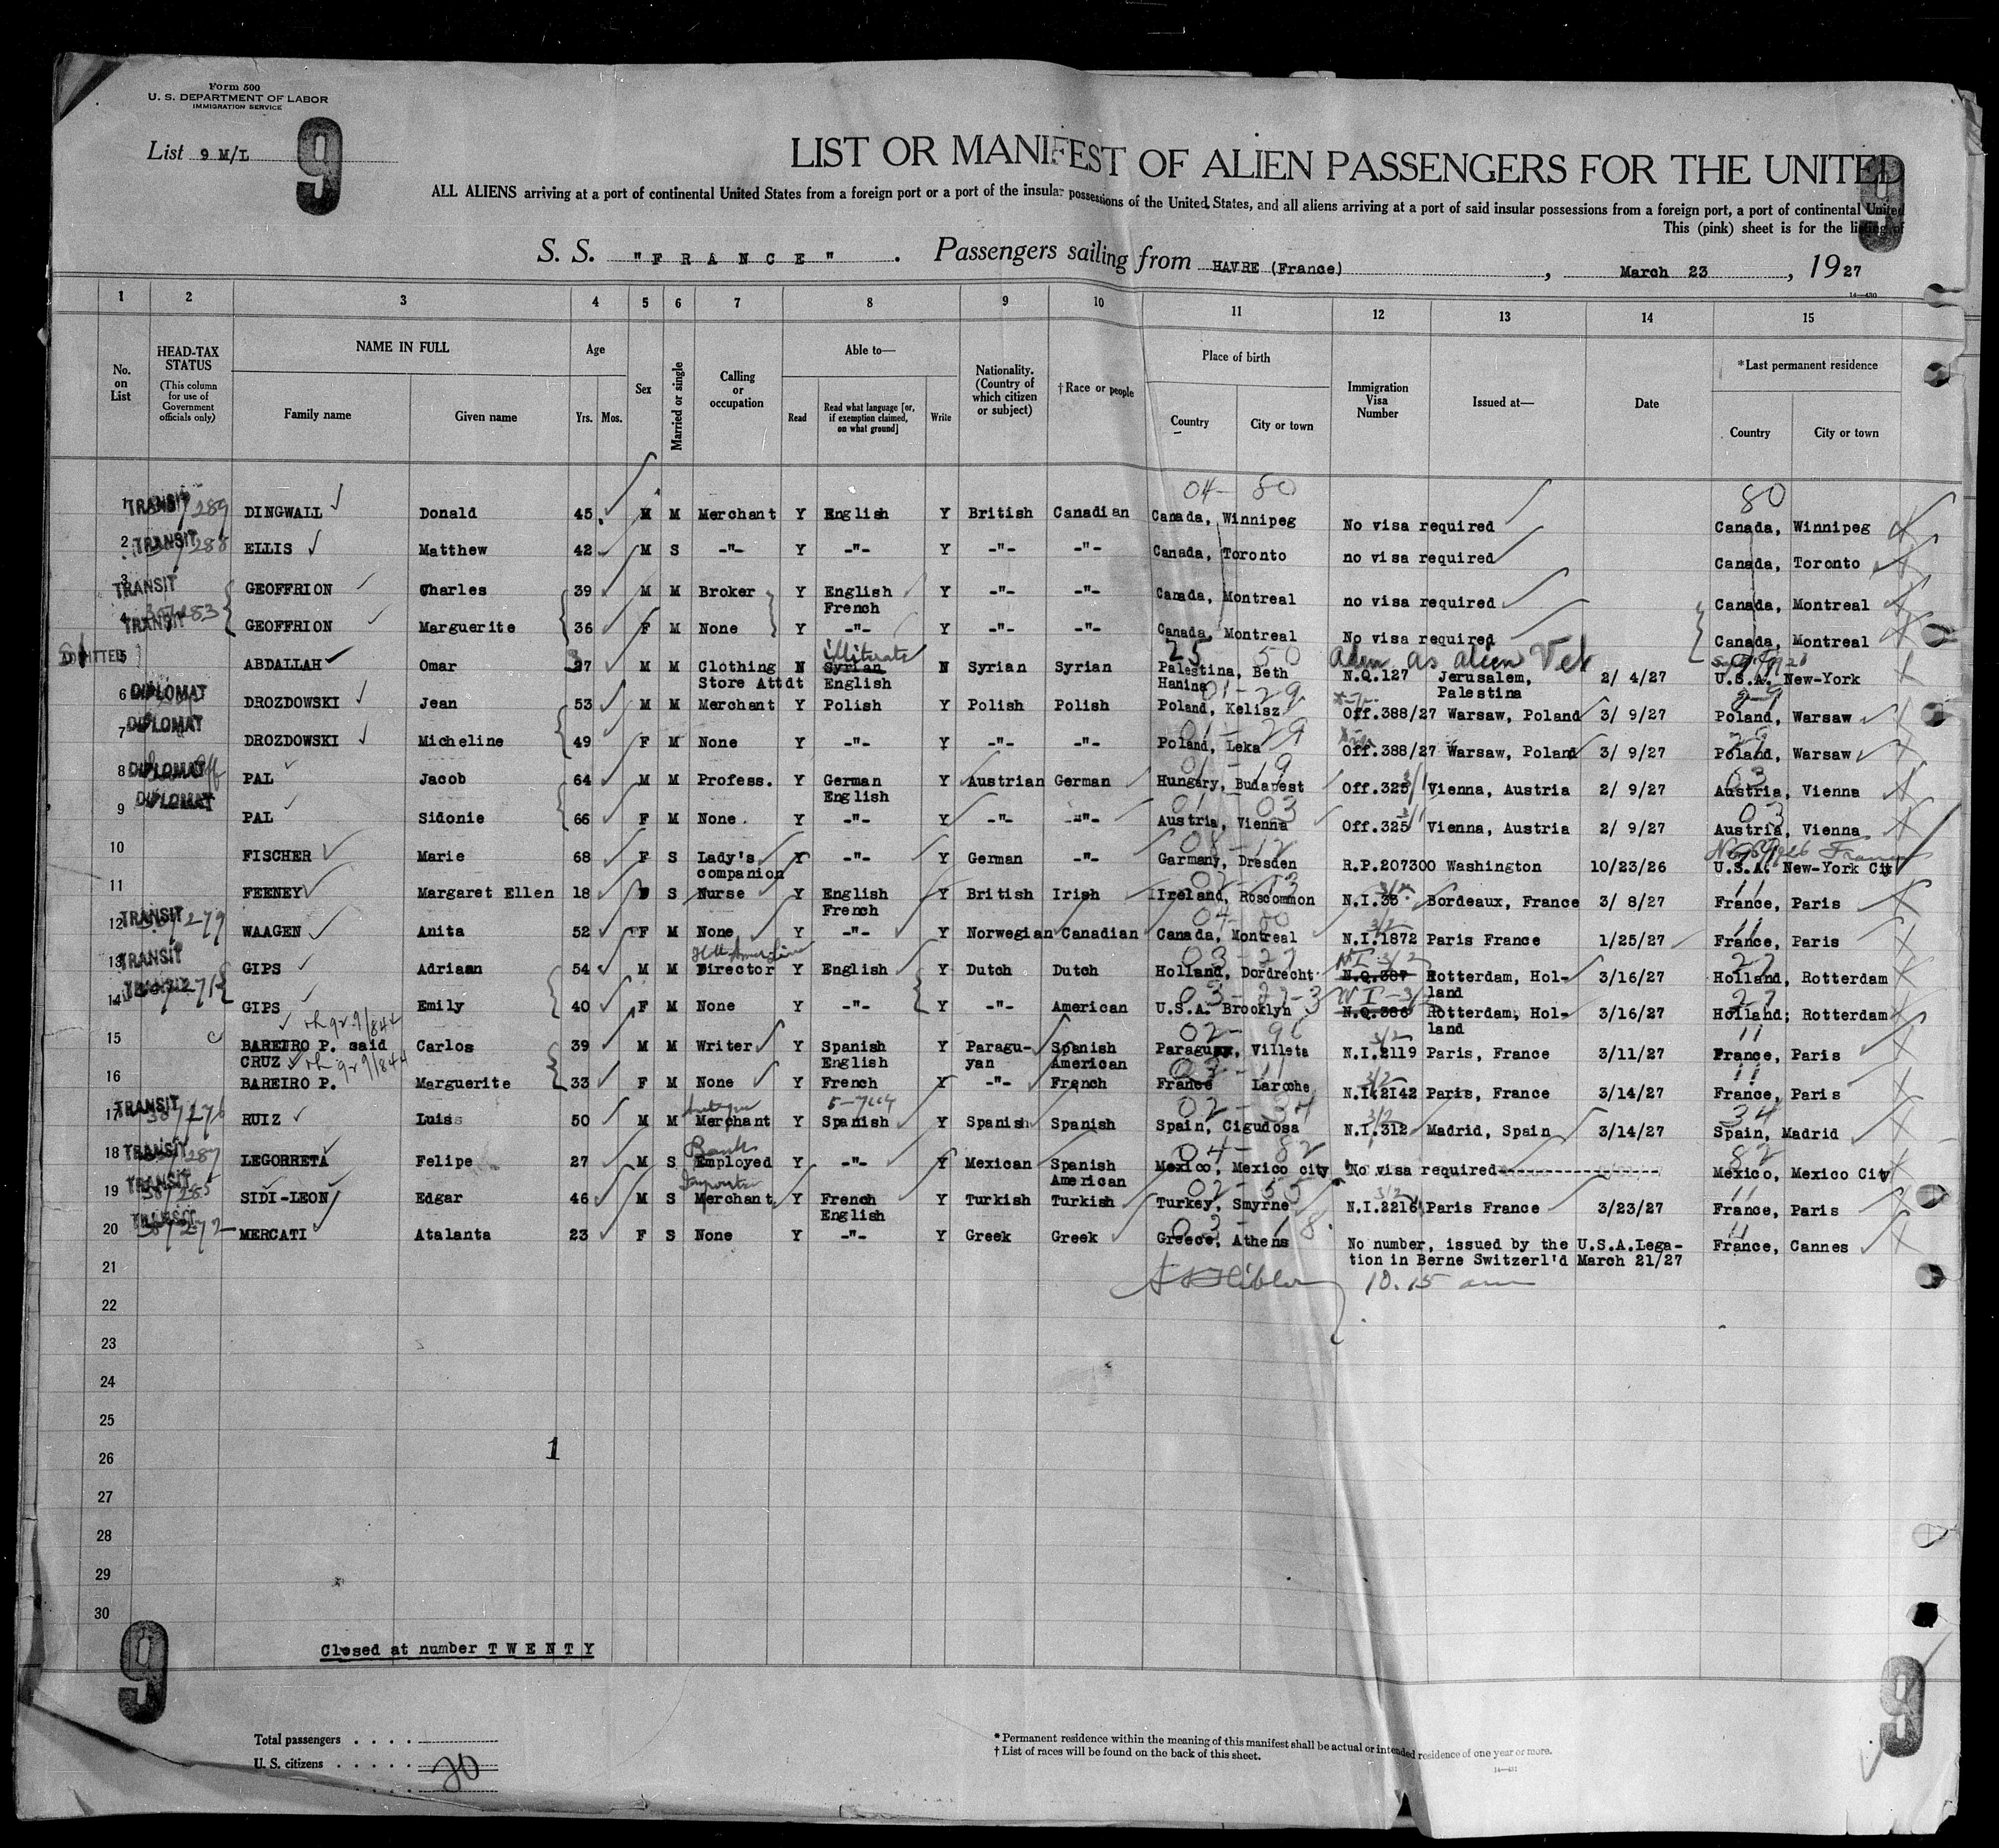 Form 500
U. S. DEPARTMENT OF LABOR
IMMIGRATION SERVICE
List 9 M/L
9
9
LIST OR MANIFEST OF ALIEN PASSENGERS FOR THE UNITED
ALL ALIENS arriving at a port of continental United States from a foreign port or a port of the insular possessions of the United States, and all aliens arriving at a port of said insular possessions from a foreign port, a port of continental United
This (pink) sheet is for the listing of
S. S. "FRANCE" . Passengers sailing from HAVRE (France) , March 23 , 1927
14—430
1 2 3 4 5 6 7 8 9 10 11 12 13 14 15
No. on List
HEAD-TAX STATUS (This column for use of Government officials only)
NAME IN FULL
Family name Given name
Age
Yrs. Mos.
Sex
Married or single
Calling or occupation
Able to—
Read Read what language [or, if exemption claimed, on what ground] Write
Nationality. (Country of which citizen or subject)
†Race or people
Place of birth
Country City or town
Immigration Visa Number
Issued at—
Date
*Last permanent residence
Country City or town
04- 80 80
1 TRANSIT 289 DINGWALL Donald 45 M M Merchant Y English Y British Canadian Canada, Winnipeg No visa required Canada, Winnipeg
2 TRANSIT 288 ELLIS Matthew 42 M S -"- Y -"- Y -"- -"- Canada, Toronto no visa required Canada, Toronto
3 TRANSIT GEOFFRION Charles 39 M M Broker Y English French Y -"- -"- Canada, Montreal no visa required Canada, Montreal
4 TRANSIT GEOFFRION Marguerite 36 F M None Y -"- Y -"- -"- Canada, Montreal No visa required Canada, Montreal
illiterate 25 50 as alien Vet
5 ADMITTED ABDALLAH Omar 37 M M Clothing Store Attdt N Syrian English N Syrian Syrian Palestina, Beth Hanina N.Q.127 Jerusalem, Palestina 2/ 4/27 U.S.A. New-York
01-29
6 DIPLOMAT DROZDOWSKI Jean 53 M M Merchant Y Polish Y Polish Polish Poland, Kelisz Off.388/27 Warsaw, Poland 3/ 9/27 Poland, Warsaw
01-29
7 DIPLOMAT DROZDOWSKI Micheline 49 F M None Y -"- Y -"- -"- Poland, Leka Off.388/27 Warsaw, Poland 3/ 9/27 Poland, Warsaw
01-19 03
8 DIPLOMAT PAL Jacob 64 M M Profess. Y German English Y Austrian German Hungary, Budapest Off.325 Vienna, Austria 2/ 9/27 Austria, Vienna
01 03 03
9 DIPLOMAT PAL Sidonie 66 F M None Y -"- Y -"- -"- Austria, Vienna Off.325 Vienna, Austria 2/ 9/27 Austria, Vienna
08-12
10 FISCHER Marie 68 F S Lady's companion Y -"- Y German -"- Garmany, Dresden R.P.207300 Washington 10/23/26 U.S.A. New-York City
11
11 FEENEY Margaret Ellen 18 F S Nurse Y English French Y British Irish Ireland, Roscommon N.I.35 Bordeaux, France 3/ 8/27 France, Paris
04-80 3/2 11
12 TRANSIT 279 WAAGEN Anita 52 F M None Y -"- Y Norwegian Canadian Canada, Montreal N.I.1872 Paris France 1/25/27 France, Paris
03-27 NI 3/2 27
13 TRANSIT GIPS Adriaan 54 M M Director Y English Y Dutch Dutch Holland, Dordrecht N.Q.387 Rotterdam, Hol-land 3/16/27 Holland, Rotterdam
03-27-3 NI-3/2 27
14 TRANSIT GIPS Emily 40 F M None Y -"- Y -"- American U.S.A. Brooklyn N.Q.386 Rotterdam, Hol-land 3/16/27 Holland; Rotterdam
02-96 3/2 11
15 BAREIRO P. said CRUZ Carlos 39 M M Writer Y Spanish English Y Paragu-yan Spanish American Paraguay, Villeta N.I.2119 Paris, France 3/11/27 France, Paris
3/2 11
16 BAREIRO P. Marguerite 33 F M None Y French Y -"- French France Laroche N.I.2142 Paris, France 3/14/27 France, Paris
02-34 3/2 34
17 TRANSIT 387276 RUIZ Luis 50 M M Merchant Y Spanish Y Spanish Spanish Spain, Cigudosa N.I.312 Madrid, Spain 3/14/27 Spain, Madrid
Bank 04-82 82
18 TRANSIT 287 LEGORRETA Felipe 27 M S Employed Y -"- Y Mexican Spanish American Mexico, Mexico city No visa required Mexico, Mexico City
Importer 02-55 3/2 11
19 TRANSIT 387285 SIDI-LEON Edgar 46 M S Merchant Y French English Y Turkish Turkish Turkey, Smyrne N.I.2216 Paris France 3/23/27 France, Paris
03-18 11
20 TRANSIT 387272 MERCATI Atalanta 23 F S None Y -"- Y Greek Greek Greece, Athens No number, issued by the U.S.A.Lega-tion in Berne Switzerl'd March 21/27 France, Cannes
21
10.15 am
22
23
24
25
26 1
27
28
29
30
Closed at number TWENTY
9
9
Total passengers . . . .
U. S. citizens . . . . .
20
* Permanent residence within the meaning of this manifest shall be actual or intended residence of one year or more.
† List of races will be found on the back of this sheet.
14—431